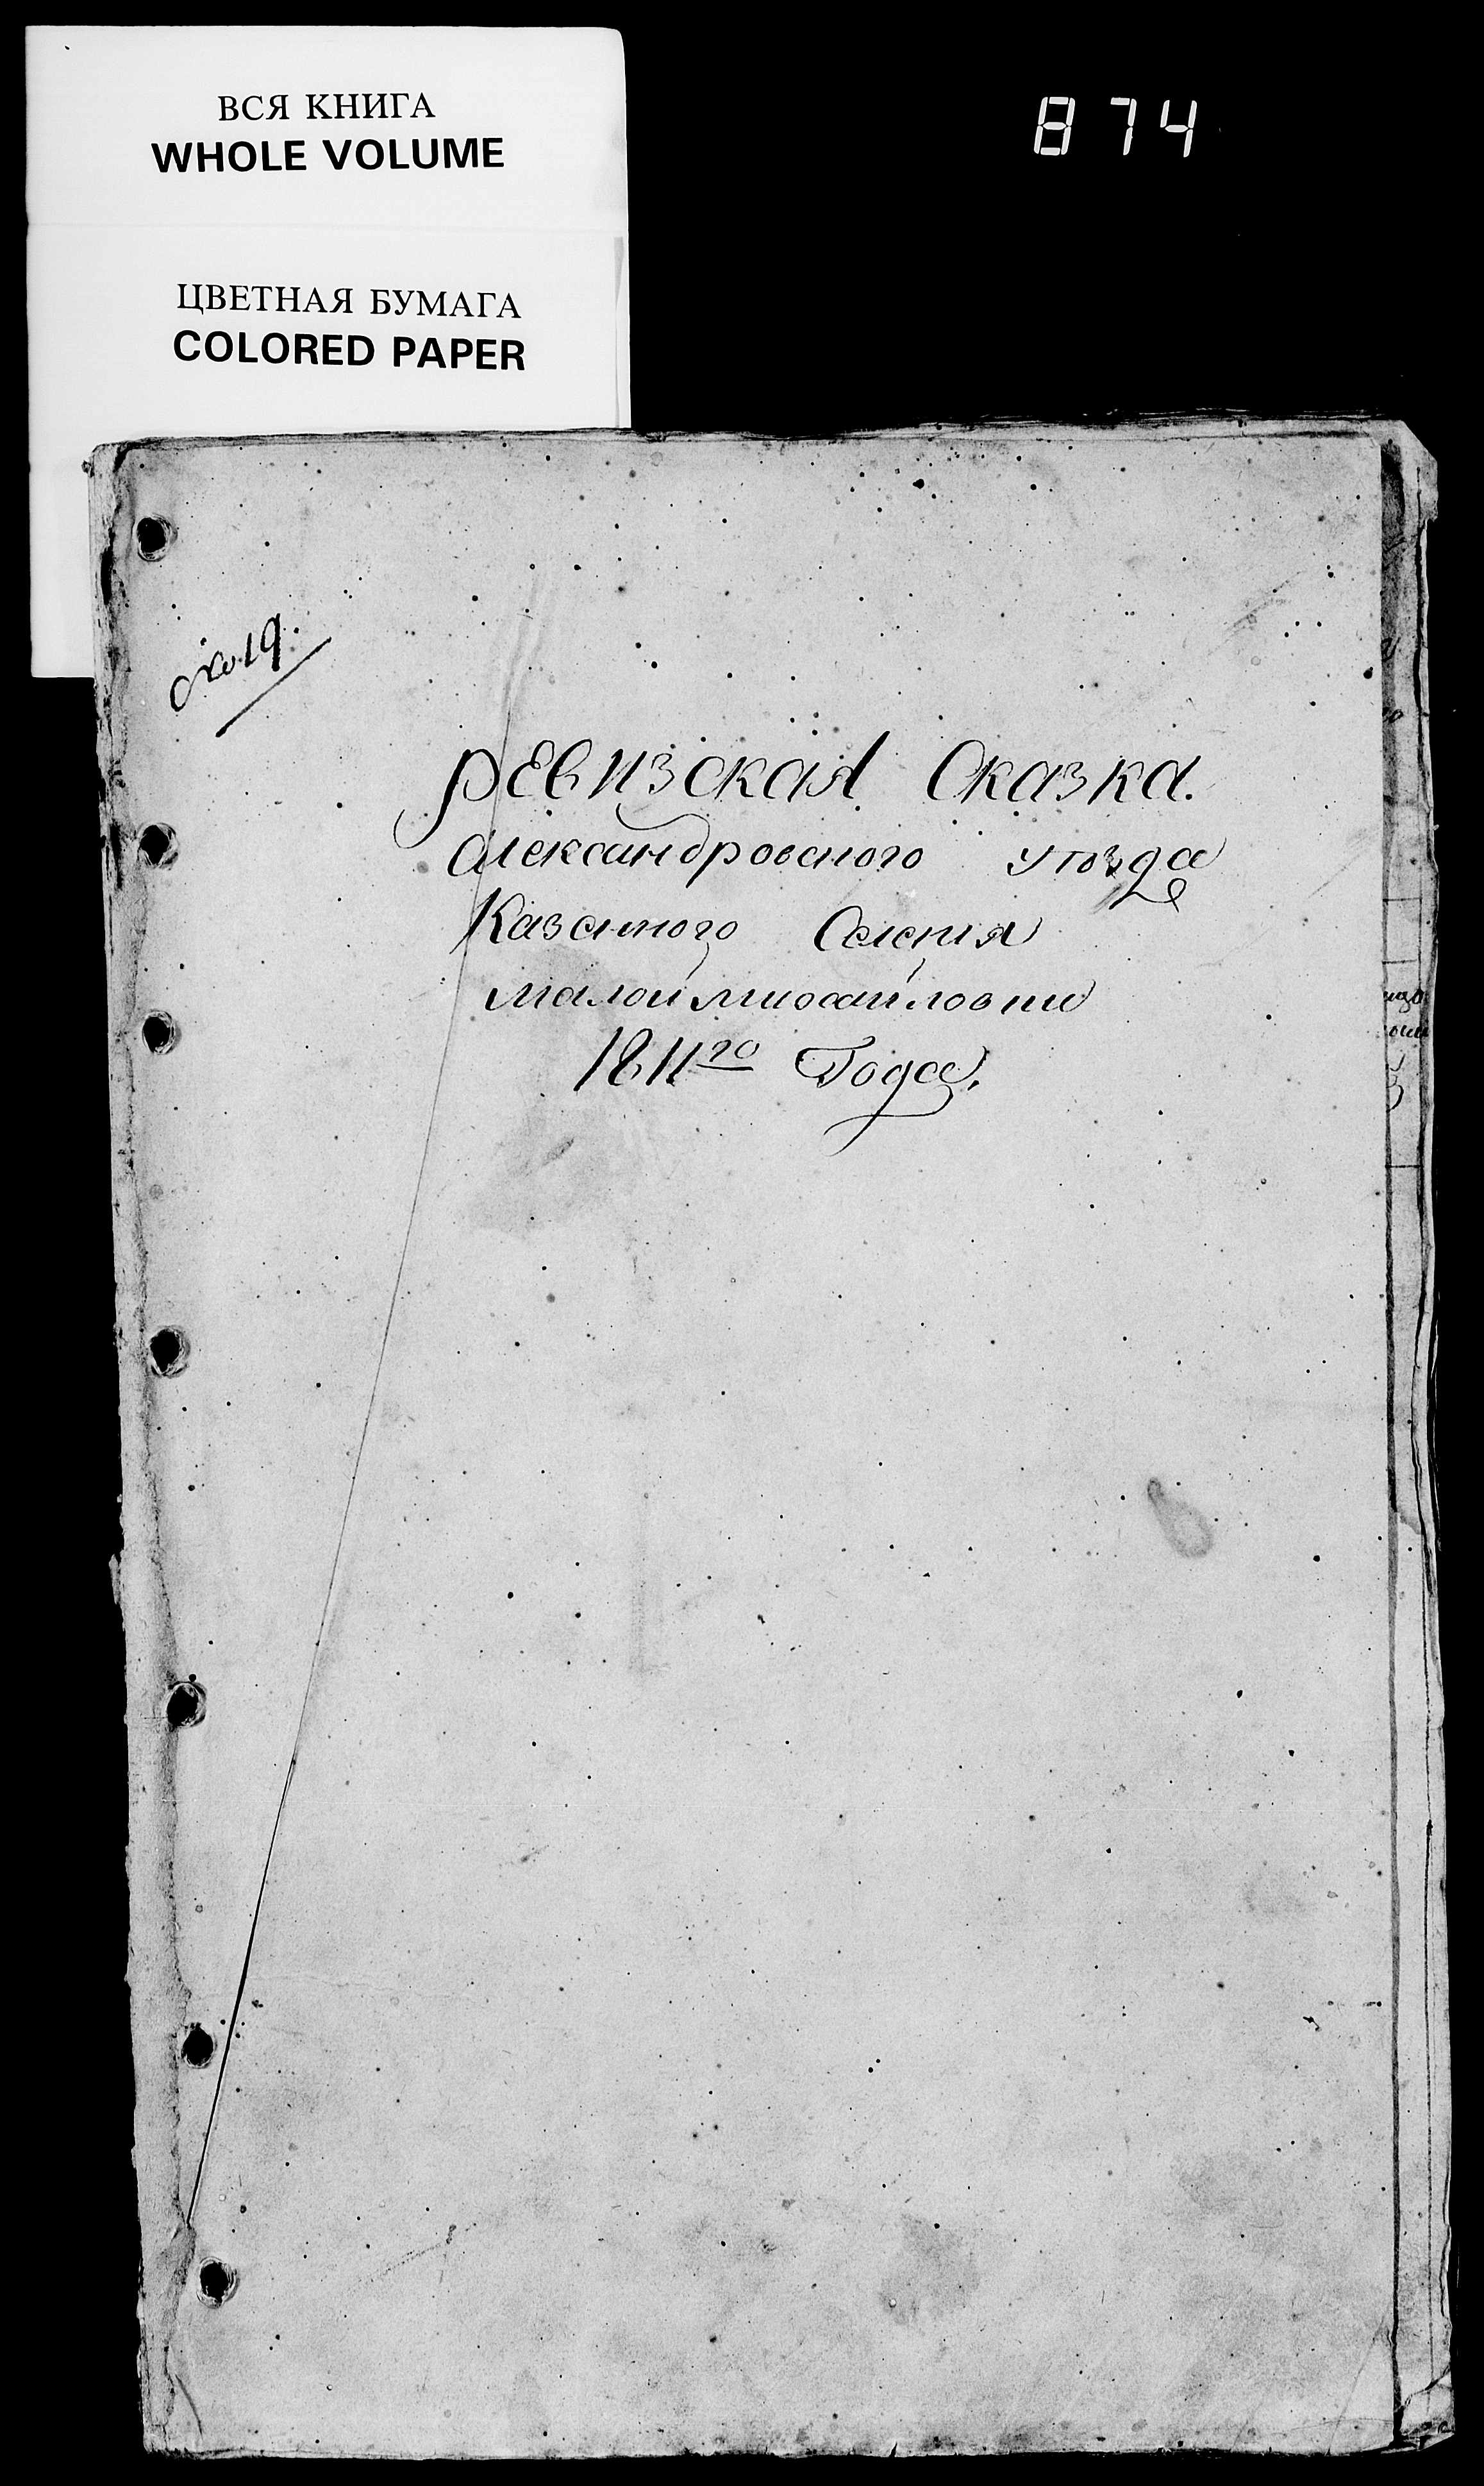 ВСЯ КНИГА
WHOLE VOLUME
874
ЦВЕТНАЯ БУМАГА
COLORED PAPER
№ 19.
Ревизская Сказка.
Александровского уѣзда
Казенного Селения
малой михайловки
1811го Года.